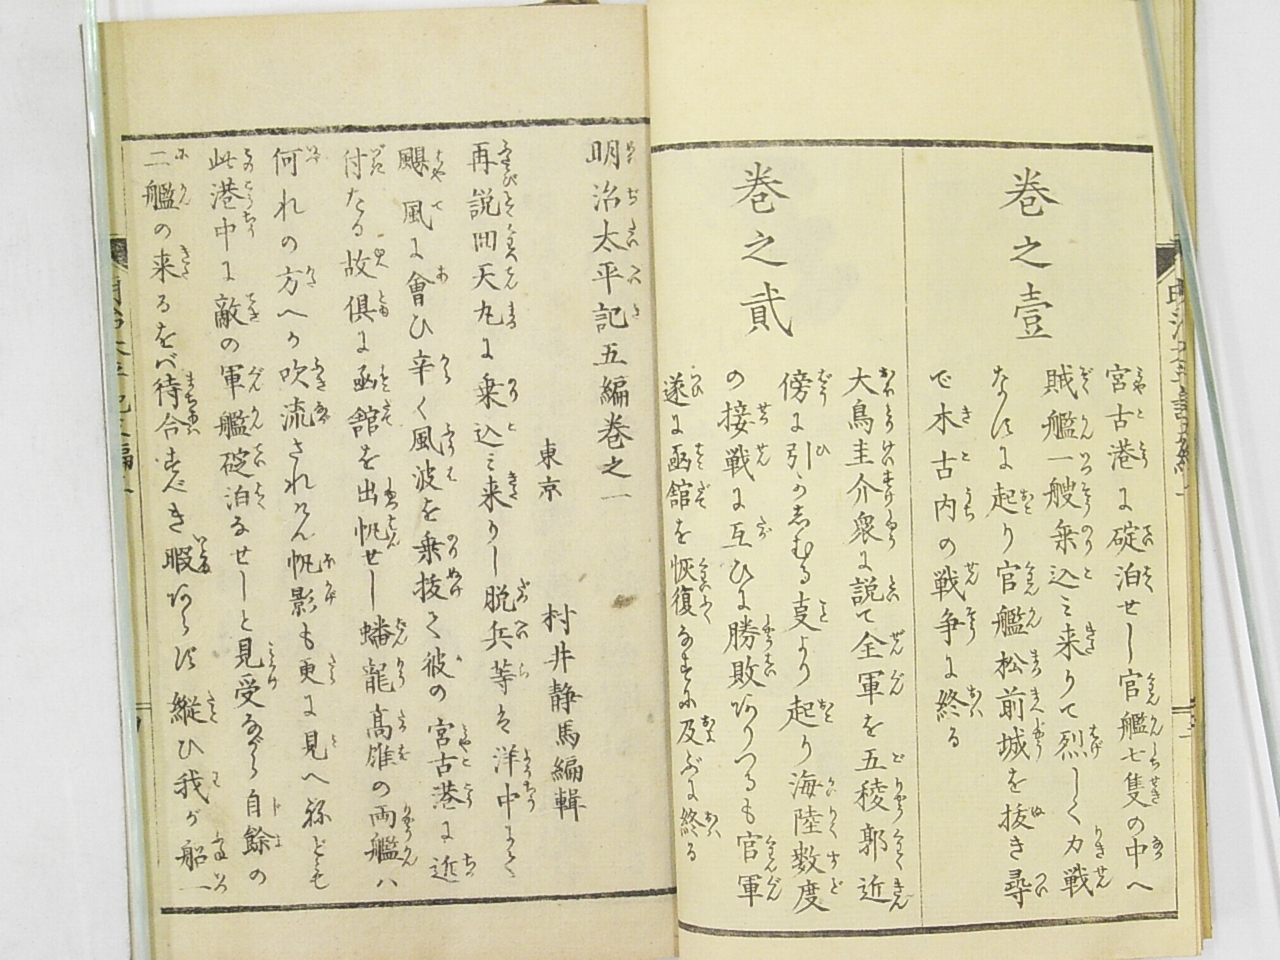 巻之壹
宮古港に碇泊せし官艦七隻の中へ
賊艦一艘乗込ミ来りて烈しく力戦
なすに起り官艦松前城を抜き尋
で木古内の戦争に終る
巻之貳
大鳥圭介衆に説て全軍を五稜郭近
傍に引しむる叓より起り海陸数度
の接戦に互ひに勝敗ありつるも官軍
遂に凾館を恢復なすに及ぶに終る
明治太平記五編巻之一
東京 村井静馬編輯
再説囬天丸に乗込ミ来りし脱兵等は洋中にて
颶風に會ひ辛く風波を乗抜て彼の宮古港に近
付たる故倶に凾館を出帆せし蟠龍高雄の両艦ハ
何れの方へか吹流されけん帆影も更に見へねども
此港中に敵の軍艦碇泊なせしと見受ながら自餘の
二艦の来るをバ待合すべき暇あらず縦ひ我が船一